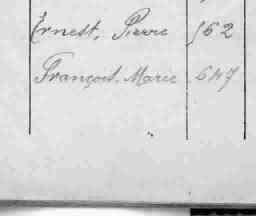 Ernest, Pierre 562
François, Marie 647